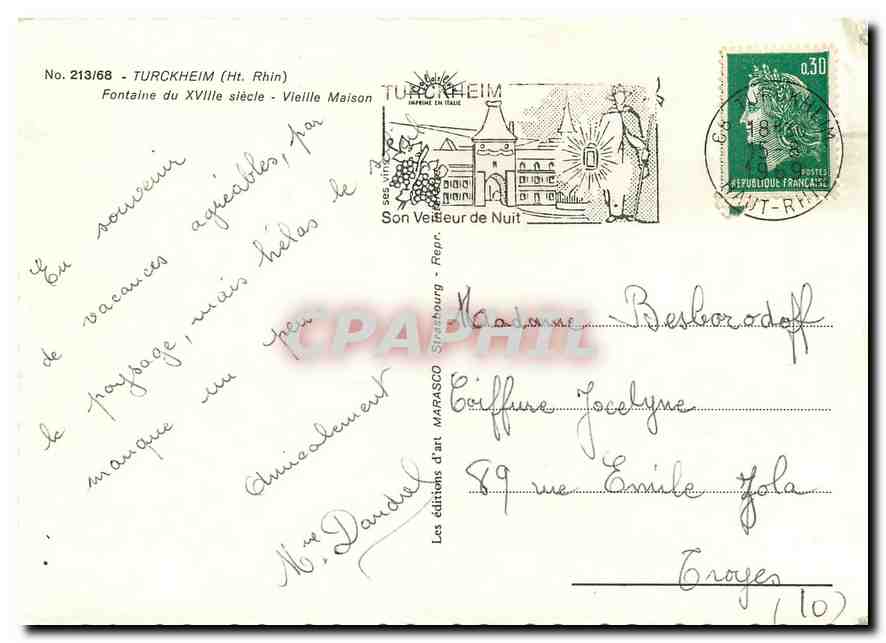 No. 213/68 - TURCKHEIM (Ht. Rhin)
Fontaine du XVIIIe siècle - Vieille Maison
IMPRIME EN ITALIE
TURCKHEIM
ses vins
Son Veilleur de Nuit
68 TURCKHEIM
18H
1969
HAUT-RHIN
0,30
POSTES
REPUBLIQUE FRANÇAISE
En souvenir
de vacances agréables, par
le paysage, mais hélas le soleil
manque un peu
Amicalement
Mme Dandrel
Les éditions d'art MARASCO Strasbourg - Repr. interdite
CPAPHIL
Madame Besborodoff
Coiffure Jocelyne
89 rue Emile Zola
Troyes
(10)